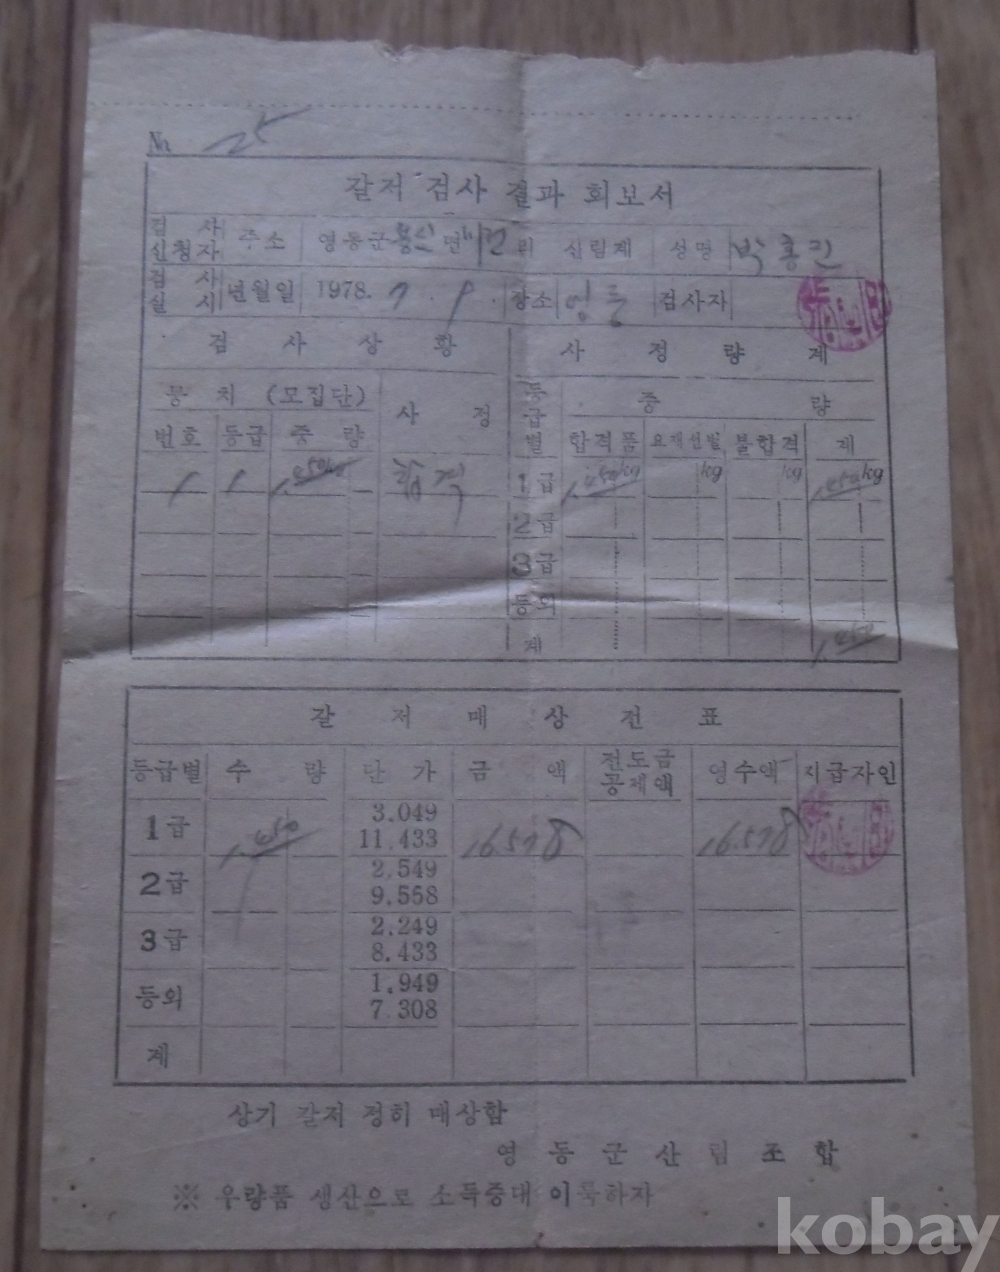 No. 25
갈저 검사 결과 회보서
검사 신청자 주소 영동군 용산면 리 산림계 성명 박흥
검사 실시 년월일 1978. 7. 9. 장소 영동 검사자
검사상황 사정량계
뭉치 (모집단) 사정 등급별 중량
번호 등급 중량 합격품 요재선별 불합격 계
1 1 1,450kg 합격 1급 1,450kg kg kg 1,450kg
2급
3급
등외
계 1,450
갈저매상전표
등급별 수량 단가 금액 전도금 공제액 영수액 지급자인
1급 1,450 3.049 11.433 16.578 16.578
2급 2.549 9.558
3급 2.249 8.433
등외 1.949 7.308
계
상기 갈저 정히 매상함
영동군산림조합
※ 우량품 생산으로 소득증대 이룩하자
kobay